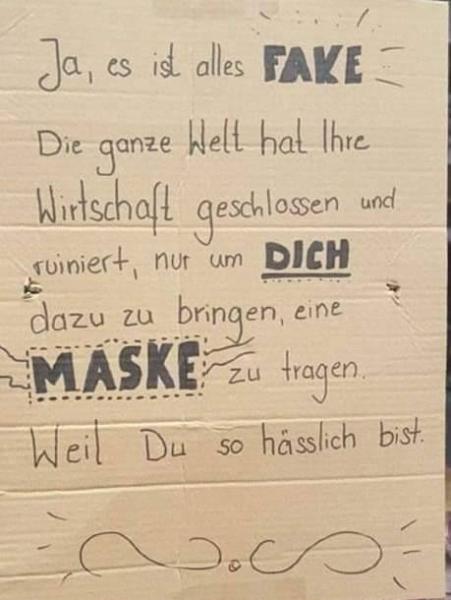 Ja, es ist alles FAKE
Die ganze Welt hat Ihre
Wirtschaft geschlossen und
ruiniert, nur um DICH
dazu zu bringen, eine
MASKE zu tragen.
Weil Du so hässlich bist.